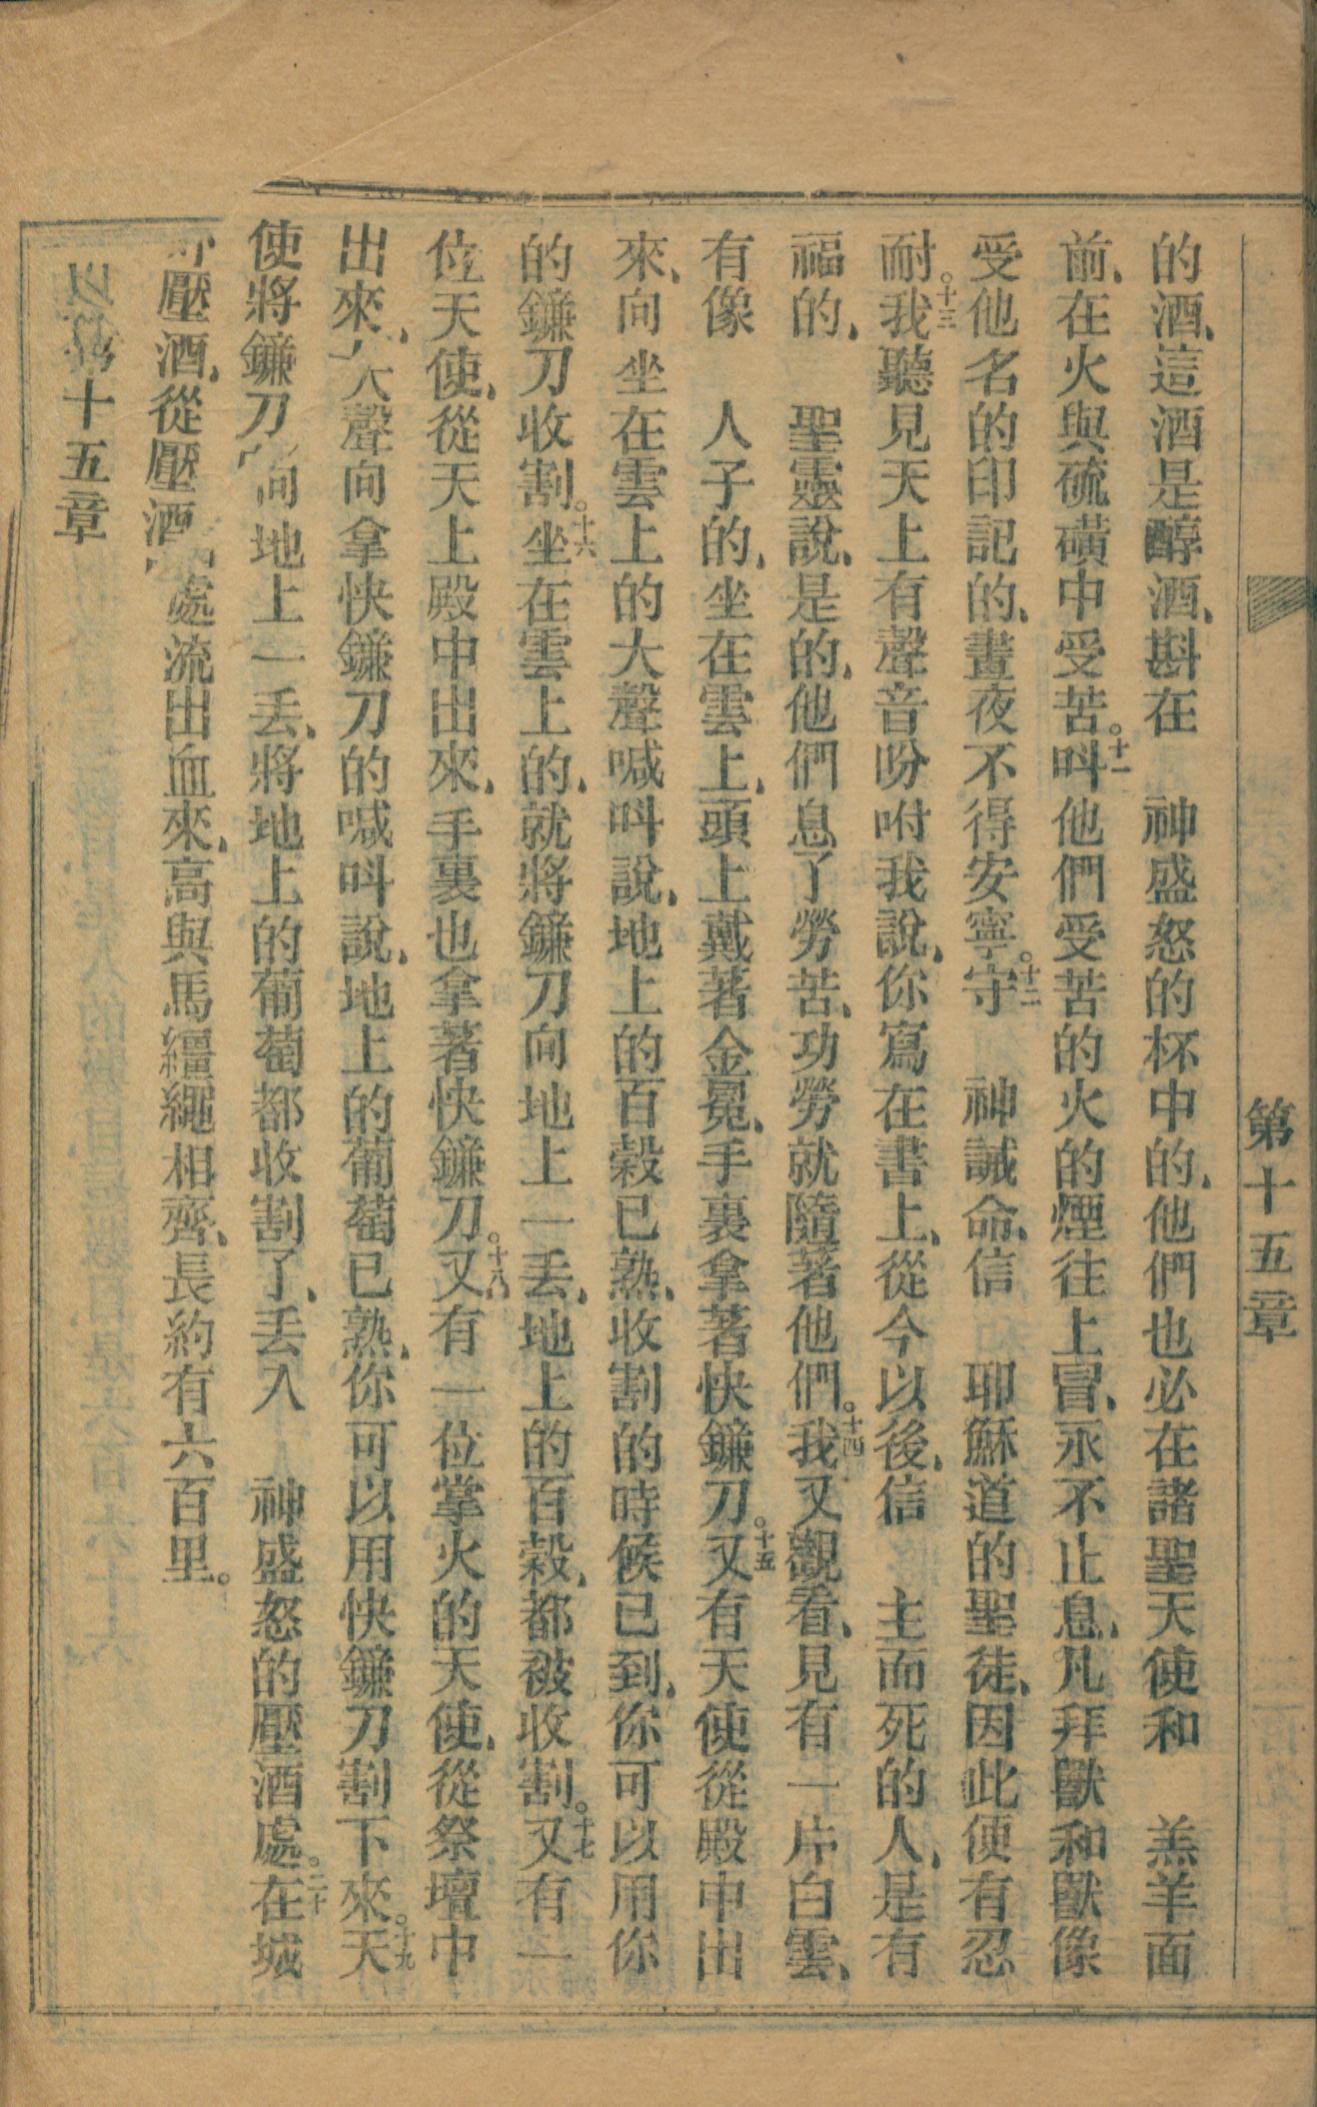 第十五章
的酒、這酒是醇酒、斟在　神盛怒的杯中的、他們也必在諸聖天使和　羔羊面
前、在火與硫磺中受苦。十一呌他們受苦的火的煙往上冒、永不止息、凡拜獸和獸像
受他名的印記的、晝夜不得安寧。十二守　神誡命、信　耶穌道的聖徒、因此便有忍
耐。十三我聽見天上有聲音吩咐我說、你寫在書上、從今以後、信　主而死的人、是有
福的、　聖靈說、是的、他們息了勞苦、功勞就隨著他們。十四我又觀看、見有一片白雲、
有像　人子的、坐在雲上、頭上戴著金冕、手裏拿著快鐮刀。十五又有天使從殿中出
來、向坐在雲上的大聲喊呌說、地上的百穀已熟、收割的時候已到、你可以用你
的鐮刀收割。十六坐在雲上的、就將鐮刀向地上一丢、地上的百穀、都被收割。十七又有一
位天使、從天上殿中出來、手裏也拿著快鐮刀。十八又有一位掌火的天使、從祭壇中
出來、大聲向拿快鐮刀的喊呌說、地上的葡萄已熟、你可以用快鐮刀割下來。十九天
使將鐮刀向地上一丢、將地上的葡萄都收割了、丢入　神盛怒的壓酒處。二十在城
壓酒、從壓酒處流出血來、高與馬繮繩相齊、長約有六百里。
十五章